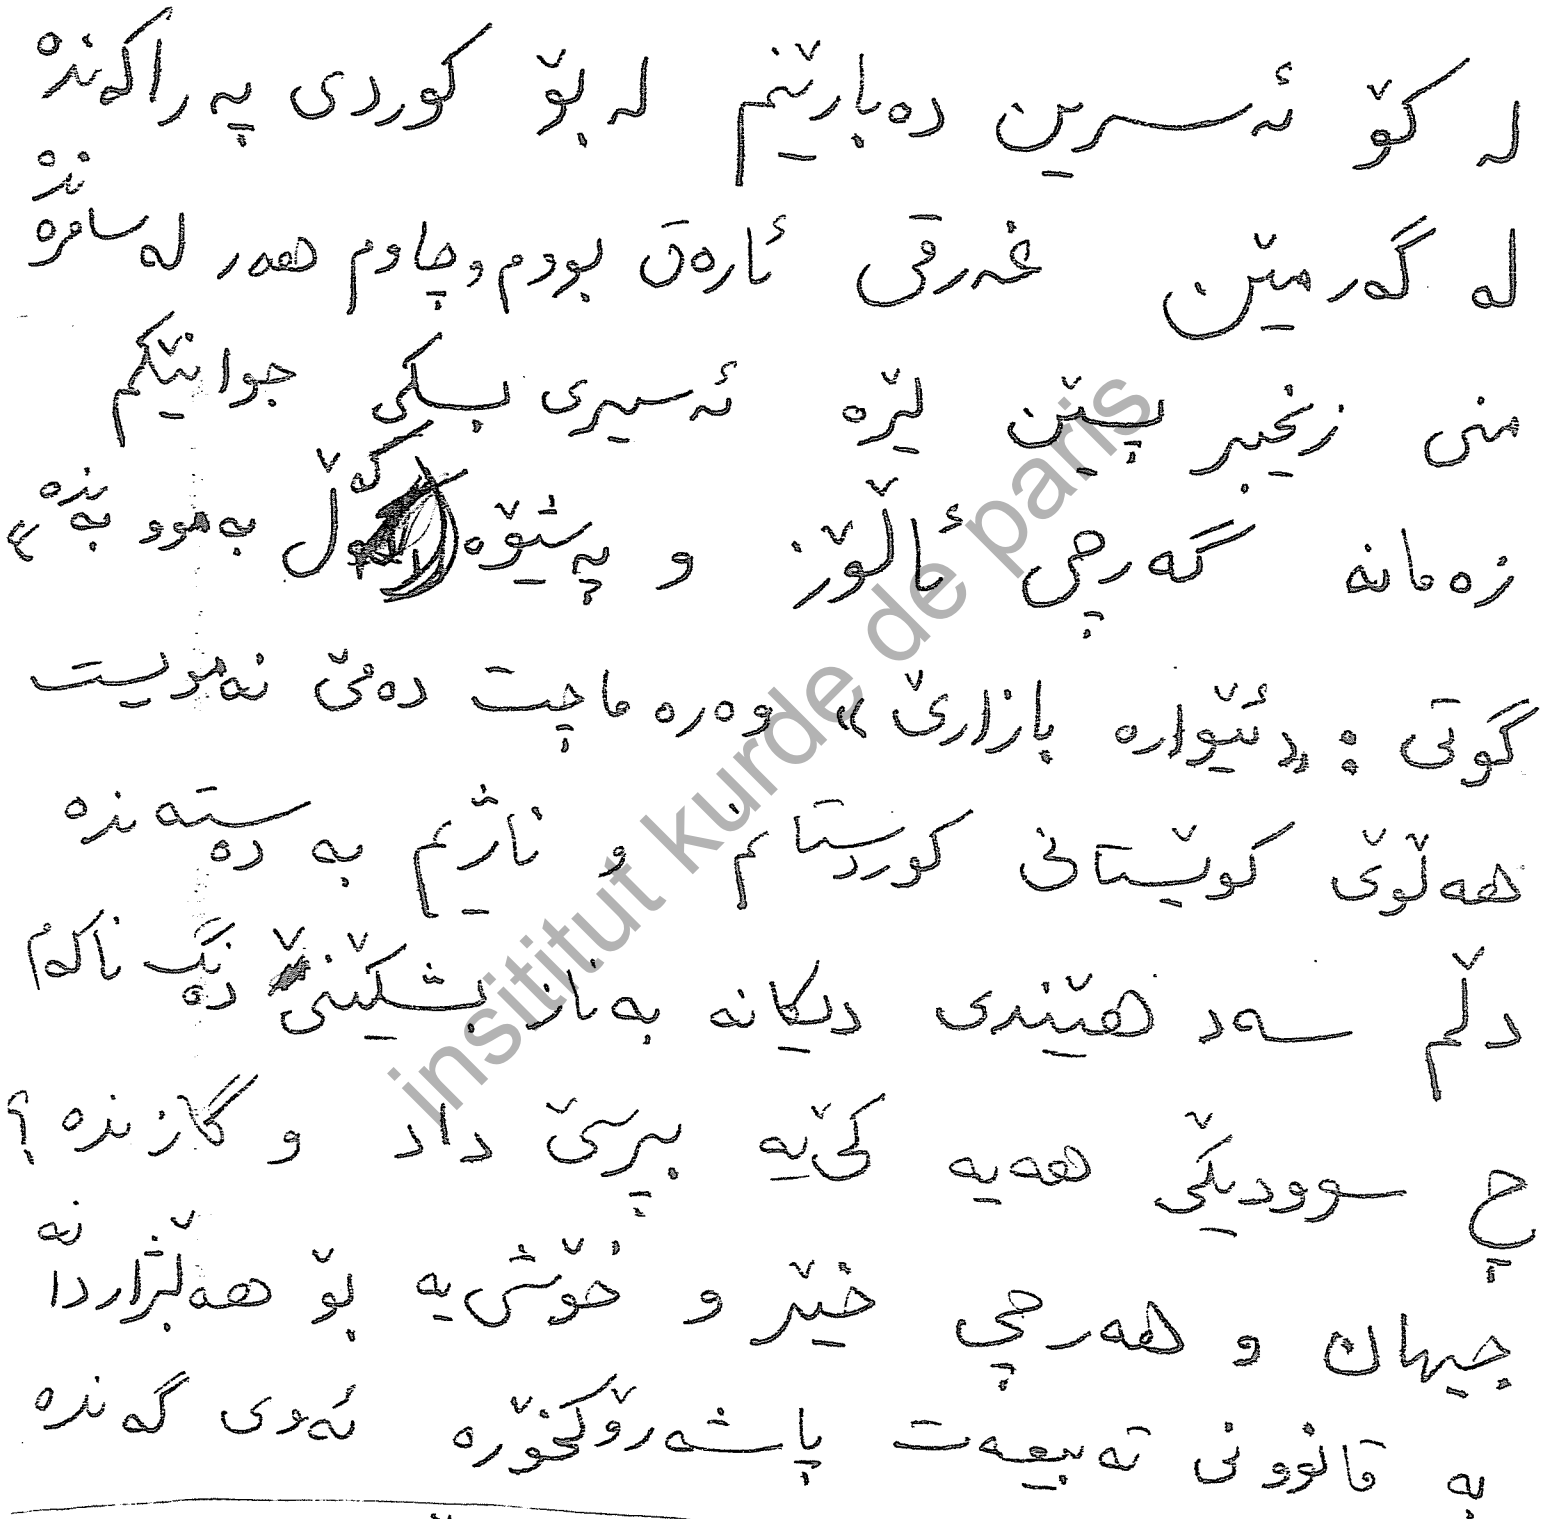 لە کۆ ئەسرین دەبارێنم لە بۆ کوردی پەراکەندە
لە گەرمێن غەرقی ئارەق بووم و چاوم هەر لە سامرەندە
منی زنجیر پسێن لێرە ئەسیری بسکی جوانێکم
زەمانە گەرچی ئاڵۆز و پەشێوە کەڵ بە موو بەندە»
گوتی: «ئێوارە بازارێ» وەرە ماچت دەمێ نەمویست
هەڵۆی کوێستانی کوردستانم و ناژیم بە دەستەندە
دڵم سەد هێندی دیکانە بە ناز بشکێنێ دەنگ ناکەم
چ سوودیکێ هەیە کێیە بپرسێ داد و گازندە؟
جیهان و هەرچی خێر و خۆشی یە بۆ هەڵبژاردانە
بە قانوونی تەبیعەت پاشەرۆکخۆرە ئەوی گەندە
insititut kurde de paris